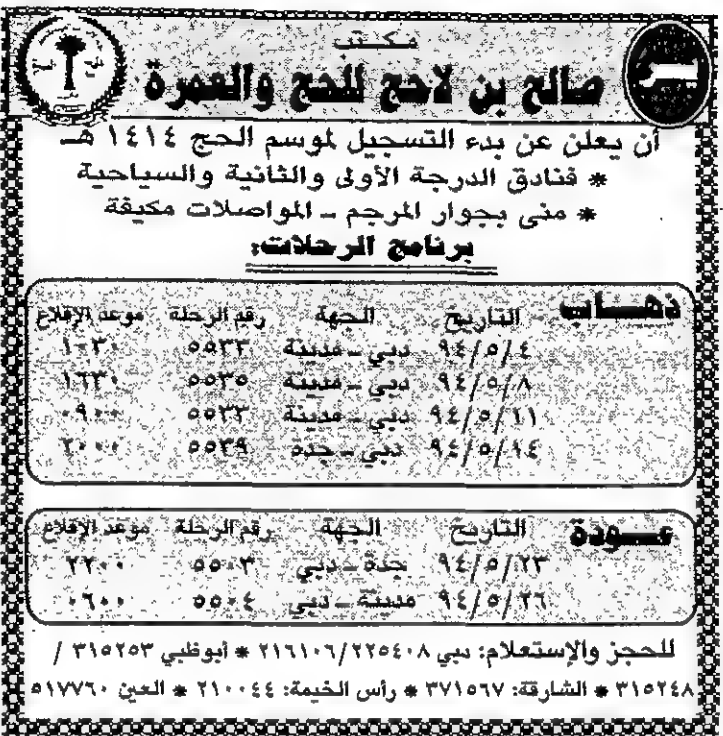 مكتب
صالح بن لاحج للحج والعمرة
أن يعلن عن بدء التسجيل لموسم الحج ١٤١٤ هـ
* فنادق الدرجة الأولى والثانية والسياحية
* منى بجوار المرجم - المواصلات مكيفة
برنامج الرحلات:
ذهاب
التاريخ الجهة رقم الرحلة موعد الإقلاع
٩٤/٥/٤ دبي - مدينة ٥٥٣٣ ١٠٣٠
٩٤/٥/٨ دبي - مدينة ٥٥٣٥ ١٦٣٠
٩٤/٥/١١ دبي - مدينة ٥٥٣٣ ٠٩٠٠
٩٤/٥/١٤ دبي - جدة ٥٥٣٩ ٢٠٠٠
عودة
التاريخ الجهة رقم الرحلة موعد الإقلاع
٩٤/٥/٢٣ جدة - دبي ٥٥٠٣ ٢٢٠٠
٩٤/٥/٢٦ مدينة - دبي ٥٥٠٤ ٠٦٠٠
للحجز والإستعلام: دبي ٢١٦١٠٦/٢٢٥٤٠٨ * أبوظبي ٣١٥٢٥٣ /
٣١٥٢٤٨ * الشارقة: ٣٧١٥٦٧ * رأس الخيمة: ٢١٠٠٤٤ * العين ٥١٧٧٦٠